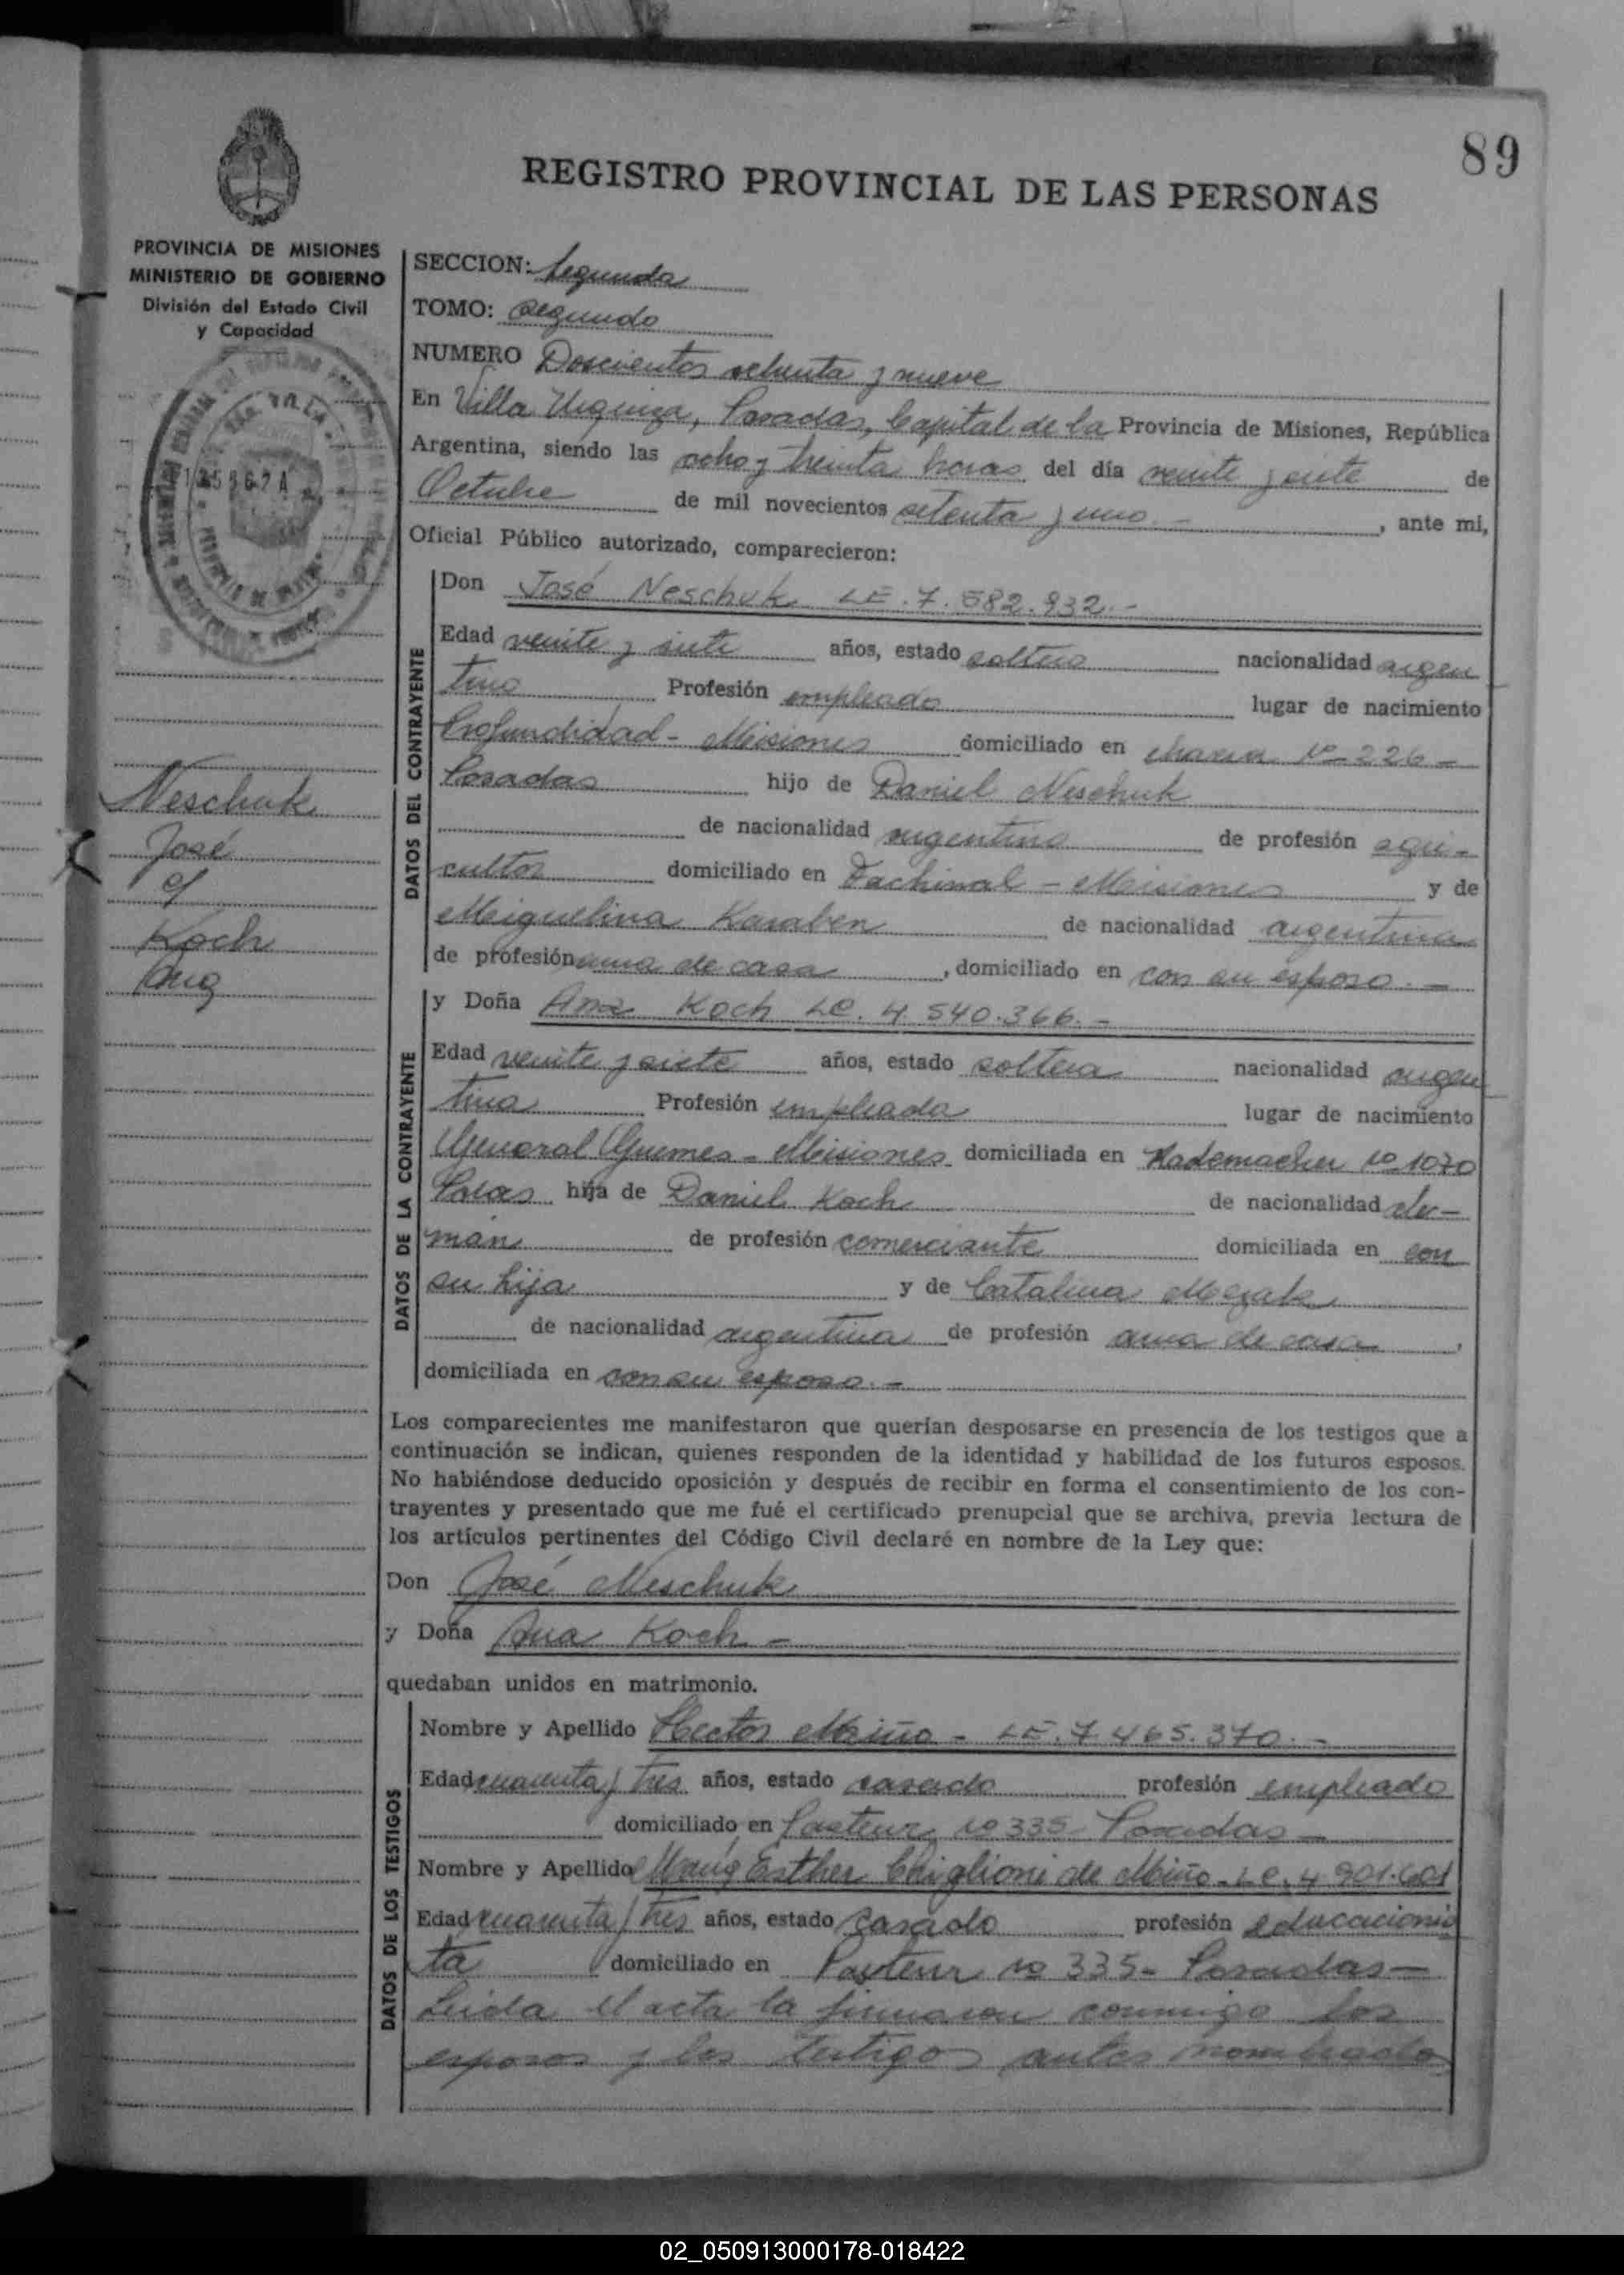 89
REGISTRO PROVINCIAL DE LAS PERSONAS
PROVINCIA DE MISIONES
MINISTERIO DE GOBIERNO
División del Estado Civil
y Capacidad
Neschuk
José
c/
Koch
Ana
SECCION: Segunda
TOMO: segundo
NUMERO Doscientos ochenta y nueve
En Villa Urquiza, Posadas, Capital de la Provincia de Misiones, República
Argentina, siendo las ocho y treinta horas del día veinte y siete de
Octubre de mil novecientos setenta y uno.- , ante mi,
Oficial Público autorizado, comparecieron:
DATOS DEL CONTRAYENTE
Don José Neschuk LE. 7.582.932.-
Edad veinte y siete años, estado soltero nacionalidad argen
tino Profesión empleado lugar de nacimiento
Profundidad - Misiones domiciliado en chacra Nº 226 -
Posadas hijo de Daniel Neschuk
de nacionalidad argentino de profesión agri-
cultor domiciliado en Fachinal - Misiones y de
Miguelina Karaben de nacionalidad argentina
de profesión ama de casa , domiciliado en con su esposo.-
DATOS DE LA CONTRAYENTE
y Doña Ana Koch LC. 4.540.366.-
Edad veinte y siete años, estado soltera nacionalidad argen
tina Profesión empleada lugar de nacimiento
General Guemes - Misiones domiciliada en Rademacher Nº 1070
Posadas hija de Daniel Koch de nacionalidad ale-
mán de profesión comerciante domiciliada en con
su hija y de Catalina
de nacionalidad argentina de profesión ama de casa ,
domiciliada en con su esposo.-
Los comparecientes me manifestaron que querían desposarse en presencia de los testigos que a
continuación se indican, quienes responden de la identidad y habilidad de los futuros esposos.
No habiéndose deducido oposición y después de recibir en forma el consentimiento de los con-
trayentes y presentado que me fué el certificado prenupcial que se archiva, previa lectura de
los artículos pertinentes del Código Civil declaré en nombre de la Ley que:
Don José Neschuk
y Doña Ana Koch -
quedaban unidos en matrimonio.
DATOS DE LOS TESTIGOS
Nombre y Apellido Hector Miño - LE. 7.465.370.-
Edad cuarenta y tres años, estado casado profesión empleado
domiciliado en Pasteur Nº 335- Posadas -
Nombre y Apellido Esther Chiglioni de Miño - LC. 4.901.601
Edad cuarenta y tres años, estado casado profesión educacionis
ta domiciliado en Pasteur Nº 335- Posadas -
Leída el acta la firmaron conmigo los
esposos y los testigos antes nombrados
02_050913000178-018422